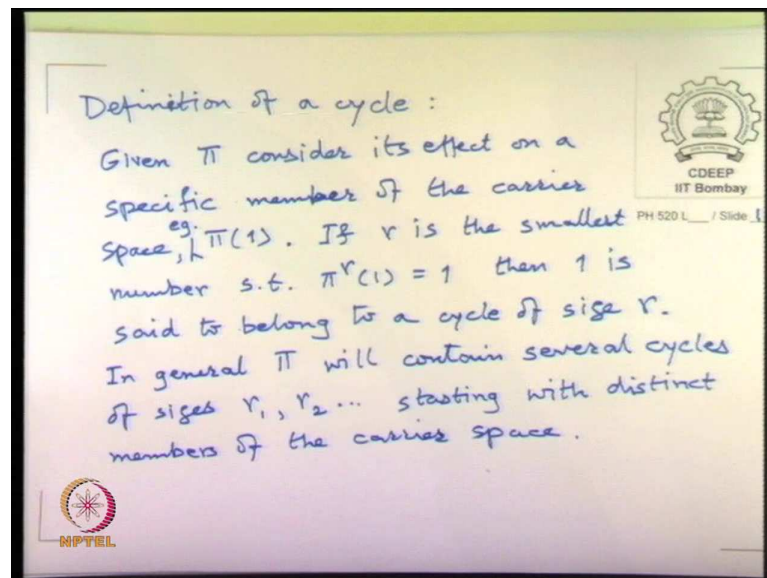 Definition of a cycle :
Given π consider its effect on a
specific member of the carrier
space, eg. π(1). If r is the smallest
number s.t. π^r(1) = 1 then 1 is
said to belong to a cycle of size r.
In general π will contain several cycles
of sizes r₁, r₂ ... starting with distinct
members of the carrier space.
CDEEP
IIT Bombay
PH 520 L___ / Slide
NPTEL